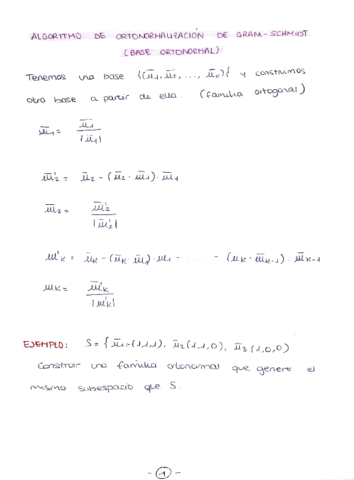 ALGORITMO DE ORTONORMALIZACIÓN DE GRAM-SCHMIDT
(BASE ORTONORMAL)
Tenemos una base {(ū₁, ū₂, ..., ūₖ)} y construimos
otra base a partir de ella. (familia ortogonal)
w̄₁ = ū₁ / |ū₁|
w̄'₂ = ū₂ - (ū₂ · w̄₁) · w̄₁
w̄₂ = w̄'₂ / |w̄'₂|
w'ₖ = ūₖ - (ūₖ · w̄₁) · w₁ - ...... - (uₖ · w̄ₖ₋₁) · w̄ₖ₋₁
wₖ = w̄'ₖ / |w'ₖ|
EJEMPLO: S = { ū₁=(1,1,1), ū₂(1,1,0), ū₃(1,0,0)
Construir una familia ortonormal que genere el
mismo subespacio que S.
-1-